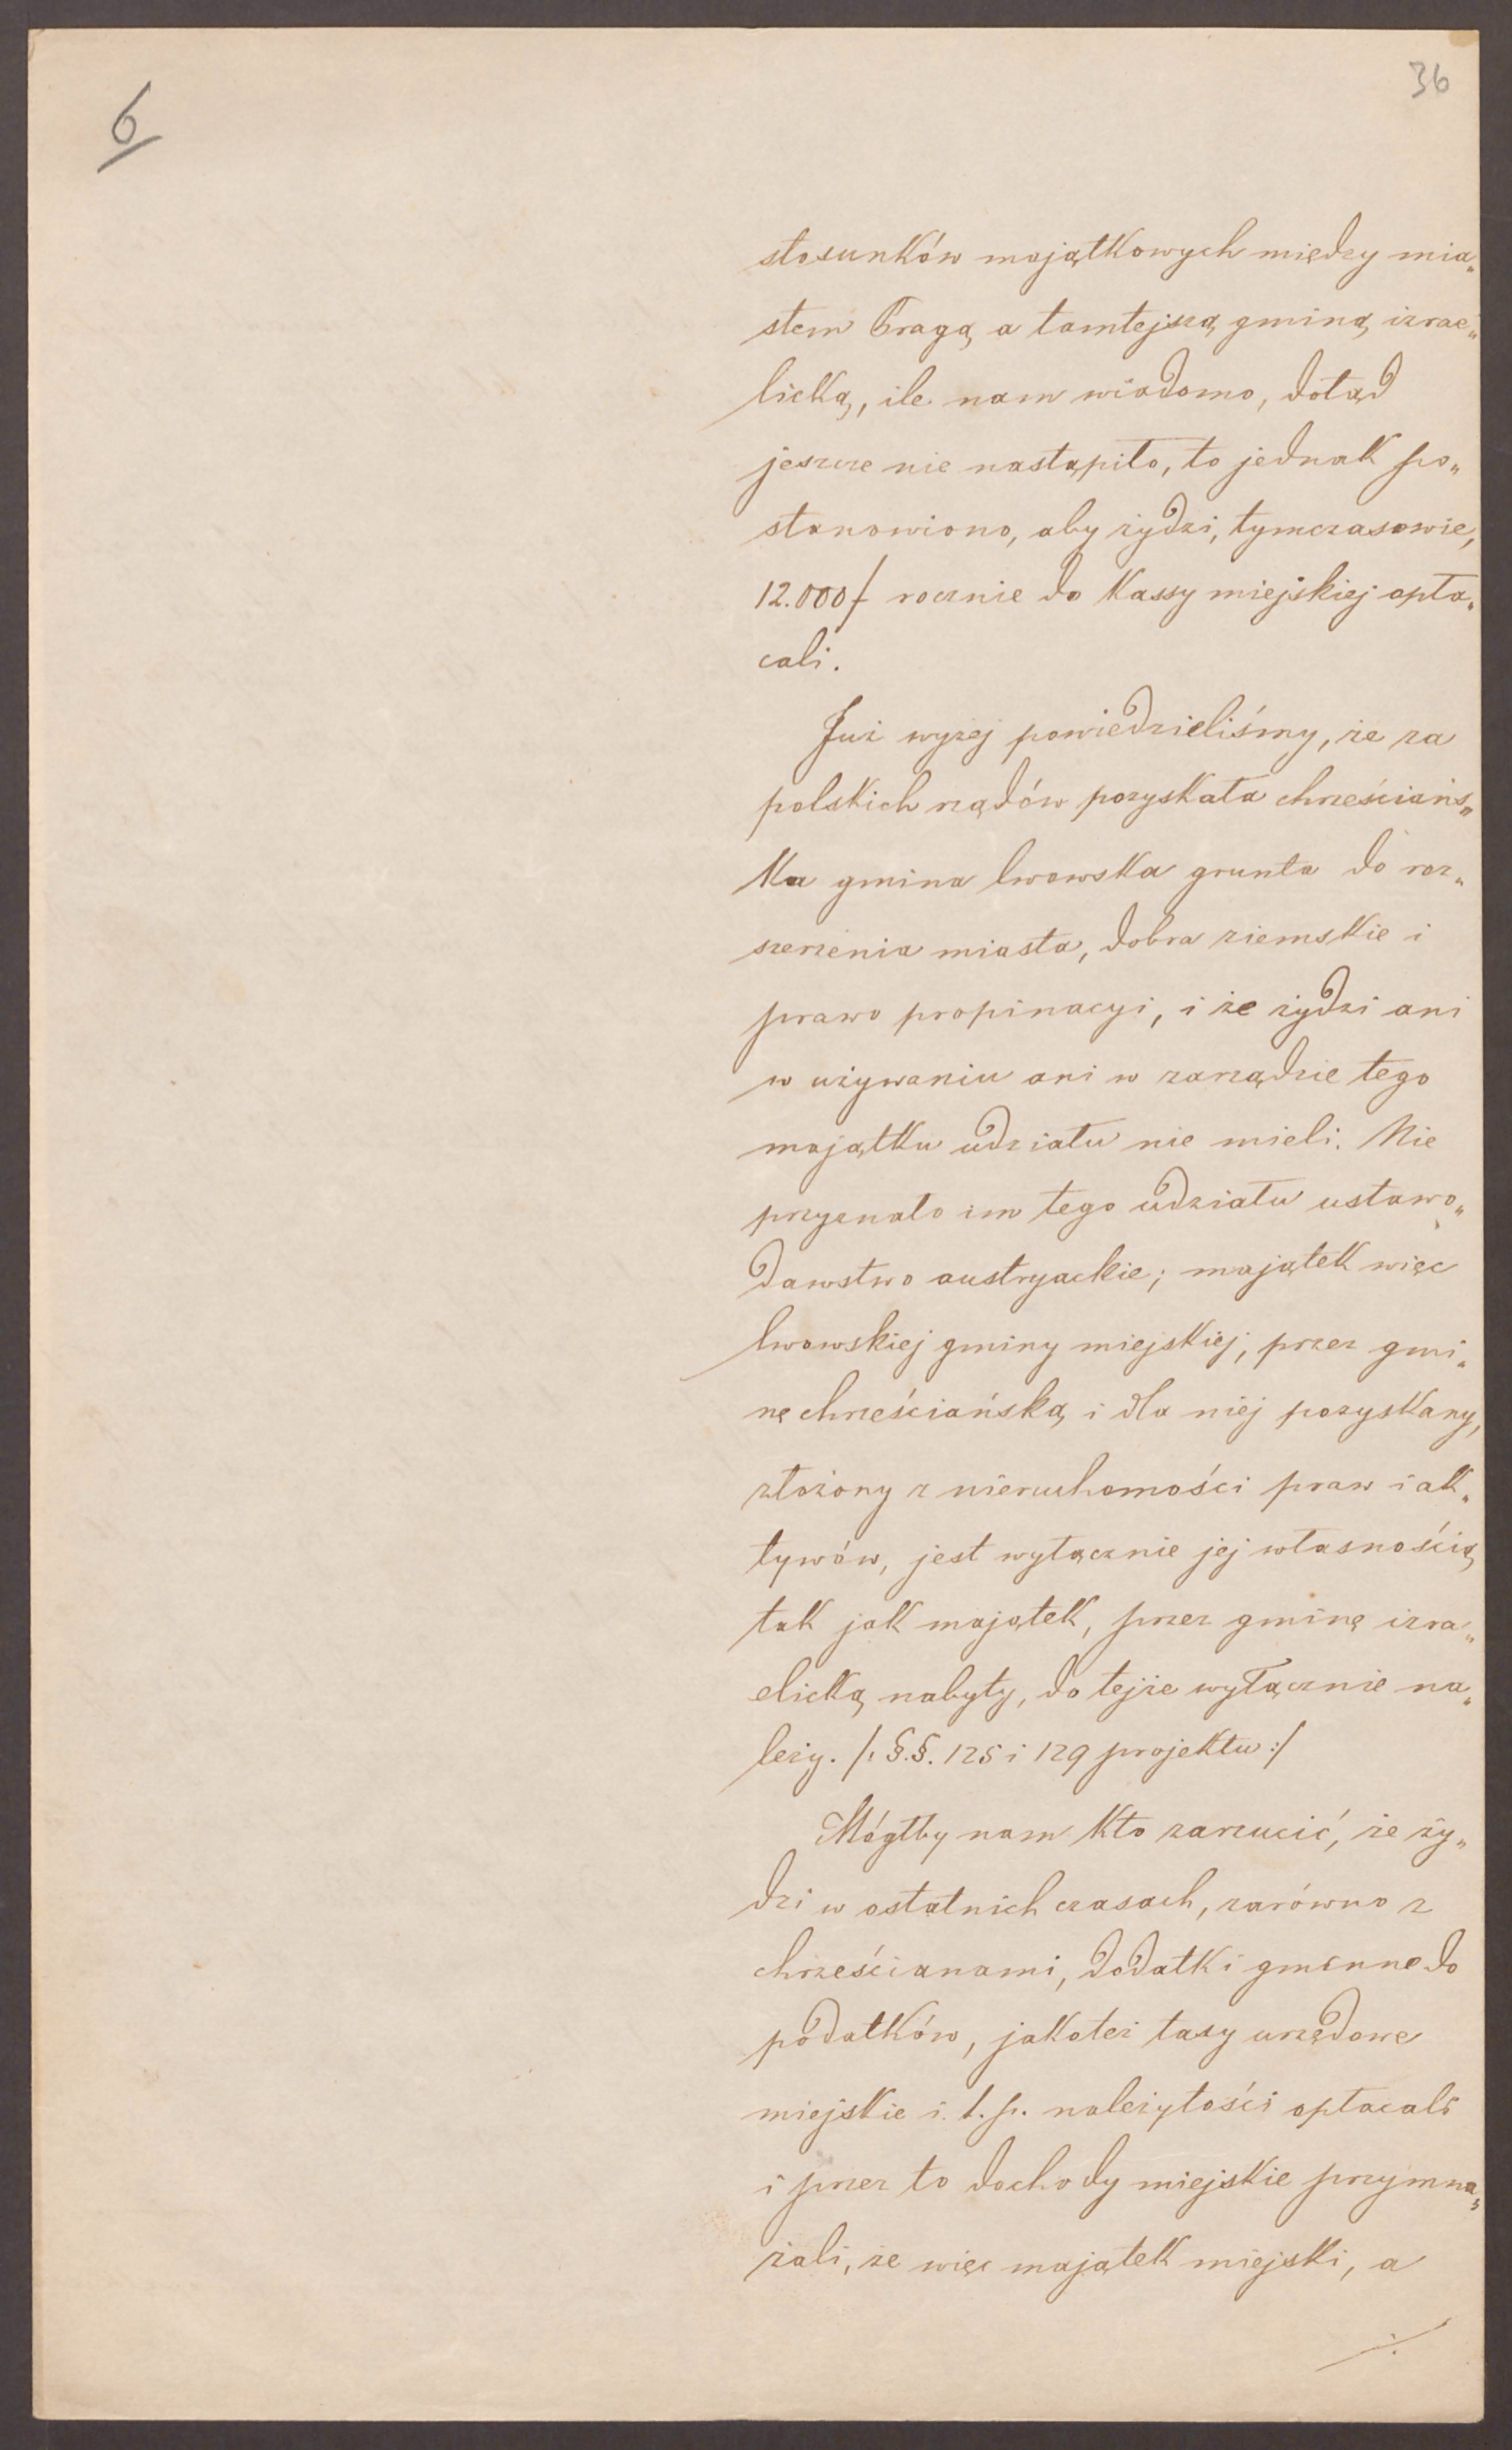 6
36
stosunków majątkowych między mia„
stem Pragą a tamtejszą gminą izrae„
licką, ile nam wiadomo, dotąd
jeszcze nie nastąpiło, to jednak po„
stanowiono, aby żydzi, tymczasowie,
12.000 f rocznie do Kassy miejskiej opła„
cali.
Już wyżej powiedzieliśmy, że za
polskich rządów pozyskała chrześciańs„
ka gmina lwowska grunta do roz„
szerzenia miasta, dobra ziemskie i
prawo propinacyi, i że żydzi ani
w używaniu ani w zarządzie tego
majątku udziału nie mieli. Nie
przyznało im tego udziału ustawo„
dawstwo austryackie; majątek więc
lwowskiej gminy miejskiej, przez gmi„
nę chrześciańską i dla niej pozyskany,
złożony z nieruchomości praw i ak„
tywów, jest wyłącznie jej własnością
tak jak majątek, przez gminę izra„
elicką nabyty, do tejże wyłącznie na„
leży. /: §.§. 125 i 129 projektu :/
Mógłby nam kto zarzucić, że ży„
dzi w ostatnich czasach, zarówno z
chrześcianami, dodatki gminne do
podatków, jakoteż taxy urzędowe
miejskie i. t. p. należytości opłacali
i przez to dochody miejskie przymna„
żali, że więc majątek miejski, a
./.